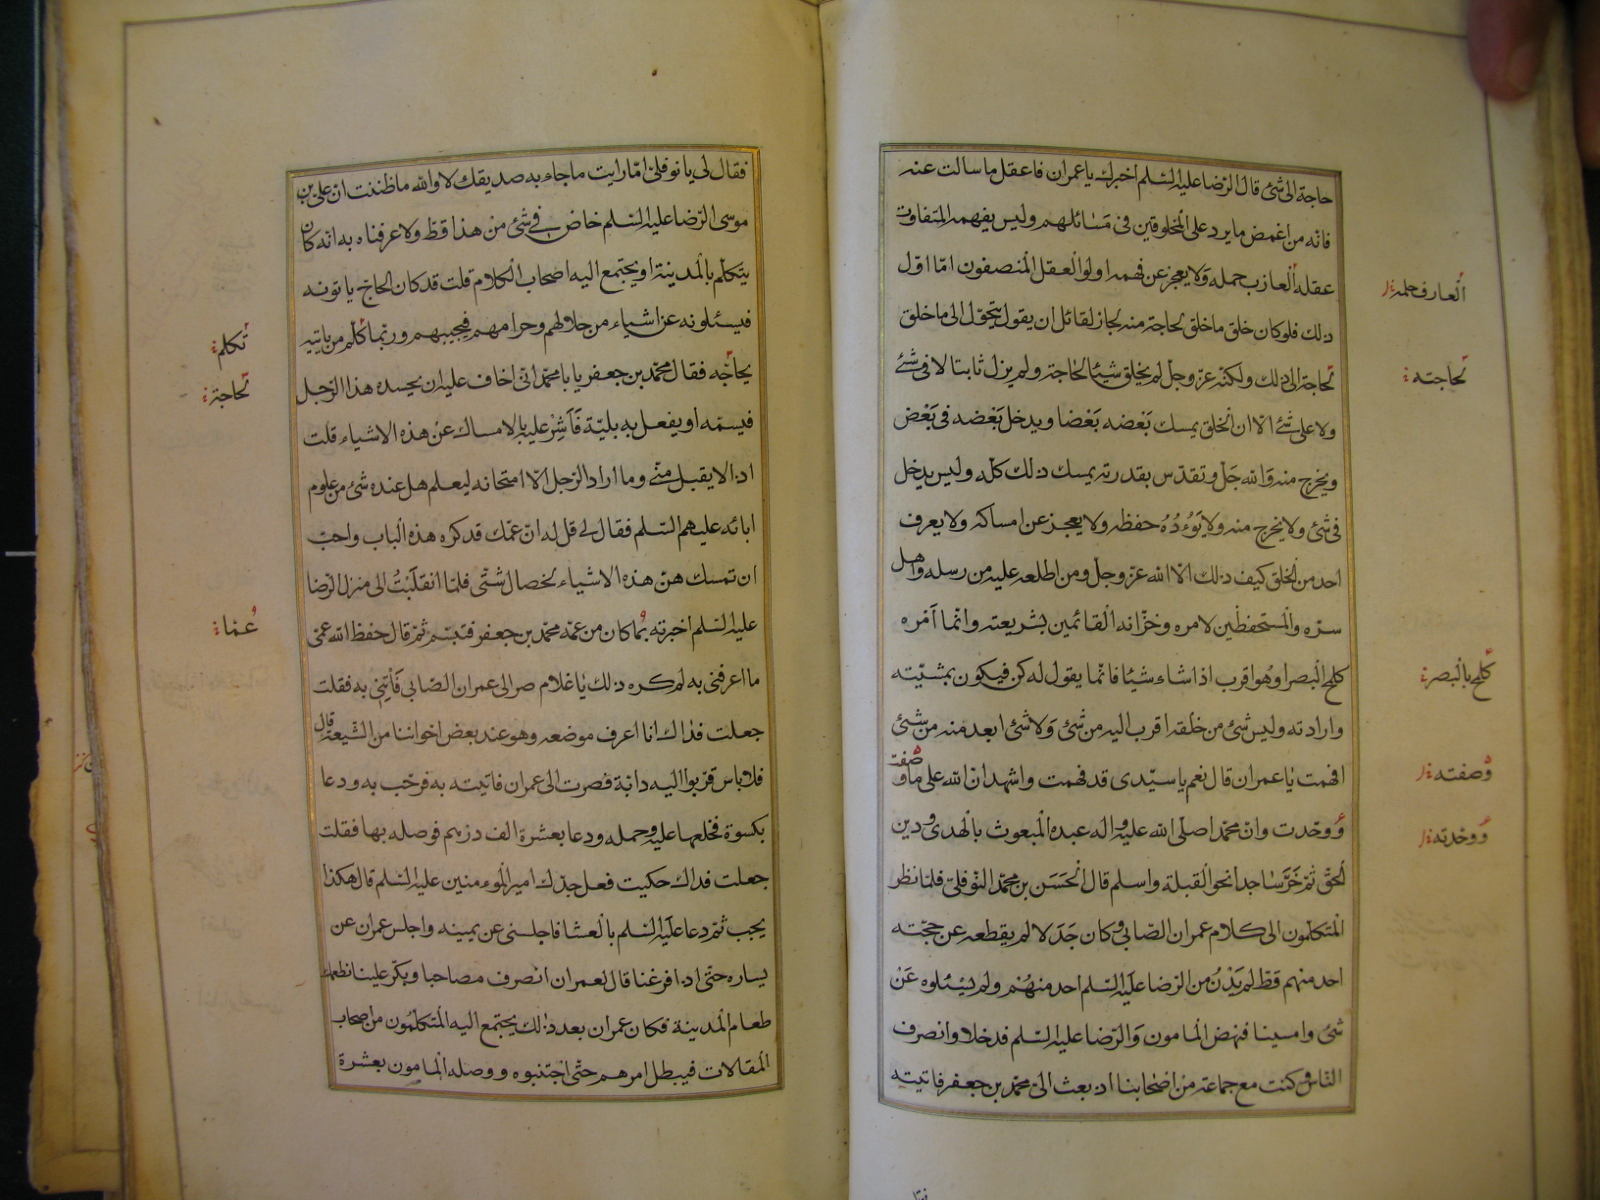 حاجة الى شئ قال الرضا عليه السلم اخبرك يا عمران فاعقل ما سالت عنه
فانه من اغمض ما يرد على المخلوقين فى مسائلهم وليس يفهمه المتفاوت
عقله العازب حمله ولا يعجز عن فهمه اولوا العقل المنصفون امّا اوّل
ذلك فلو كان خلق ما خلق لحاجة منه لجاز لقائل ان يقول يتحوّل الى ما خلق
لحاجة الى ذلك ولكنّه عزّ وجلّ لم يخلق شيئا لحاجة ولم يزل ثابتا لا فى شئ
ولا على شئ الّا ان الخلق يمسك بَعْضه بَعْضا ويدخل بَعْضه فى بَعْض
ويخرج منه والله جلّ وتقدّس بقدرته يمسك ذلك كلّه وليس يدخل
فى شئ ولا يخرج منه ولا يَوُدُهُ حفظه ولا يعجز عن امساكه ولا يعرف
احد من الخلق كيف ذلك الّا الله عزّ وجلّ ومن اطلعه عليه من رسله واهل
سرّه والمستحفظين لامره وخزّانه القائمين بشريعته وانّما اَمْره
كلمح البصر او هو اقرب اذا شاء شيئا فانّما يقول له كن فيكون بمشيّته
وارادته وليس شئ من خلقه اقرب اليه من شئ وَلا شئ ابعد منه من شئ
افهمت يا عمران قال نعم يا سيّدى قد فهمت واشهد ان الله على ما وصفت
ووحّدت وانّ محمّدا صلّى الله عليه وآله عبده المبعوث بالهدى ودين
الحقّ ثمّ خَرَّ سَاجدا نحو القبلة واسلم قال الحَسَن بن محمّد النّوفلىّ فلمّا نظر
المتكلّمون الى كلام عمران الصّابى وكان جَدَلا لم يقطعه عن حجّته
احد منهم قطّ لم يَدْنُ من الرّضا عليه السّلم احد منهُم ولم يسئلوه عَنْ
شئ وامسينا فنهض المامون وَالرّضا عليه السّلم فدخلا وانصرف
النّاس وكنت مع جماعة من اصْحابنا اذ بعث الىّ محمّد بن جعفر فاتيته
العارف حلمه
لحاجته
كلمح بالبصر
وصفته
ووحدته
فقال لى يا نوفلىّ امّا رايت ما جاء به صديقك لا والله ما ظننت انّ علىّ بن
موسى الرّضا عليه السّلم خاض فى شئ من هذا قطّ ولا عرفناه به انّه كان
يتكلّم بالمدينة او يجتمع اليه اصحاب الكلام قلت قد كان الحاجّ ياتونه
فيسئلونه عن اشياء من حلالهم وحرامهم فيجيبهم وربّما كلّم من ياتيه
يحاجّه فقال محمّد بن جعفر يا با محمّد انّى اخاف عليه ان يحسده هذا الرّجل
فيسمّه او يفعل به بليّة فَاَشِرْ عليه بالامساك عنْ هذه الاشياء قلت
اذا لا يقبل منّى وما اراد الرّجل الّا امتحانه ليعلم هل عنده شئ من علوم
ابائه عليهم السّلم فقال لى قل له انّ عمّك قد كره هذه الباب واحبّ
ان تمسك عن هذه الاشياء لخصال شتّى فلمّا انقلَبْتُ الى منزل الرّضا
عليه السّلم اخبرته بما كان من عمّه محمّد بن جعفر فتبسّم ثمّ قال حفظ الله عمّى
ما اعرفنى به لم كره ذلك يا غلام صر الى عمران الصّابى فَأْتِنى به فقلت
جعلت فداك انا اعرف موضعه وهو عند بعض اخواننا من الشّيعة قال
فلا باس قرّبوا اليه دابّة فصرت الى عمران فاتيته به فرحّب به ودعا
بكسوة فخلعها عليه وحمله ودعا بعشرة الف درهم فوصله بها فقلت
جعلت فداك حكيت فعل جدّك امير المؤمنين عليه السّلم قال هكذا
يجب ثمّ دعا عليه السّلم بالعشا فاجلسنى عن يمينه واجلس عمران عن
يساره حتّى اذا فرغنا قال لعمران انصرف مصاحبا وبكّر علينا نطعمك
طعام المدينة فكان عمران بعد ذلك يجتمع اليه المتكلّمون من اصحاب
المقالات فيبطل امرهم حتّى اجتنبوه ووصله المامون بعشرة
تكلم
لحاجة
عما